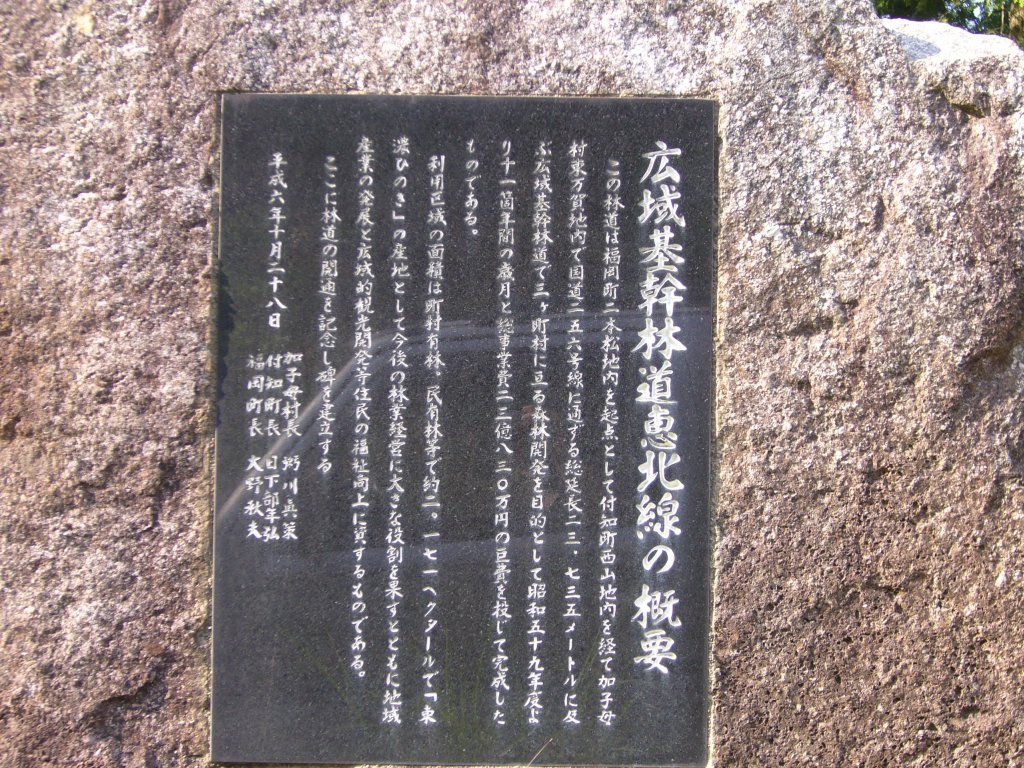 広域基幹林道恵北線の概要
この林道は福岡町二本松地内を起点として付知町西山地内を経て加子母
村東万賀地内で国道二五六号線に通ずる総延長二三、七三五メートルに及
ぶ広域基幹林道で三ヶ町村に亘る森林開発を目的として昭和五十九年度よ
り十一箇年間の歳月と総事業費二三億八三〇万円の巨費を投じて完成した
ものである。
利用区域の面積は町村有林、民有林等で約二、一七一ヘクタールで「東
濃ひのき」の産地として今後の林業経営に大きな役割を果すとともに地域
産業の発展と広域的観光開発等住民の福祉向上に資するものである。
ここに林道の開通を記念し碑を建立する
平成六年十月二十八日
加子母村長 粥川眞策
付知町長 日下部
福岡町長 大野秋夫